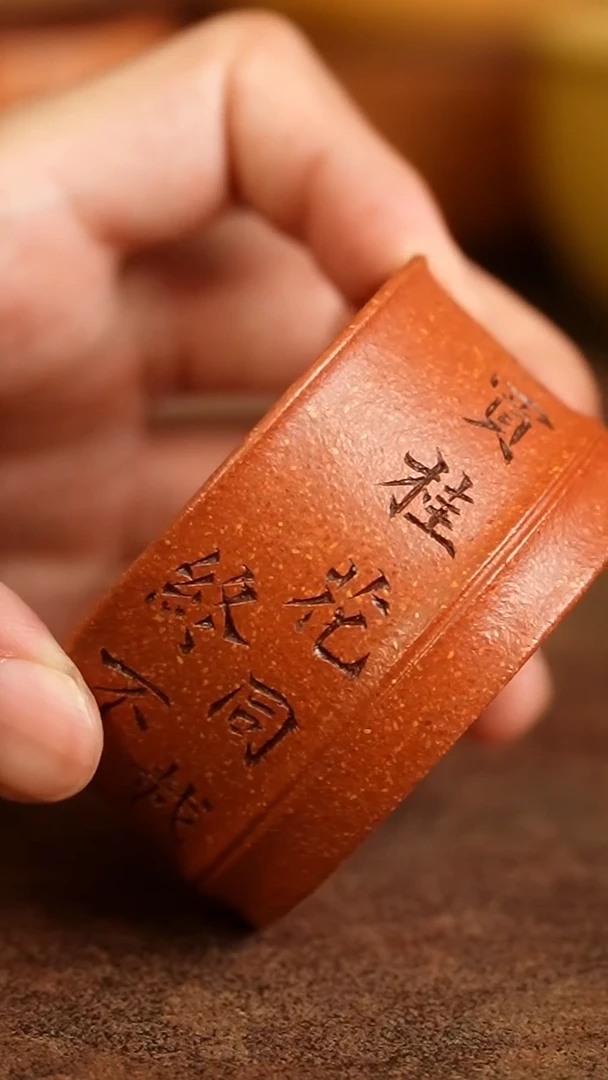 買桂花同
終不